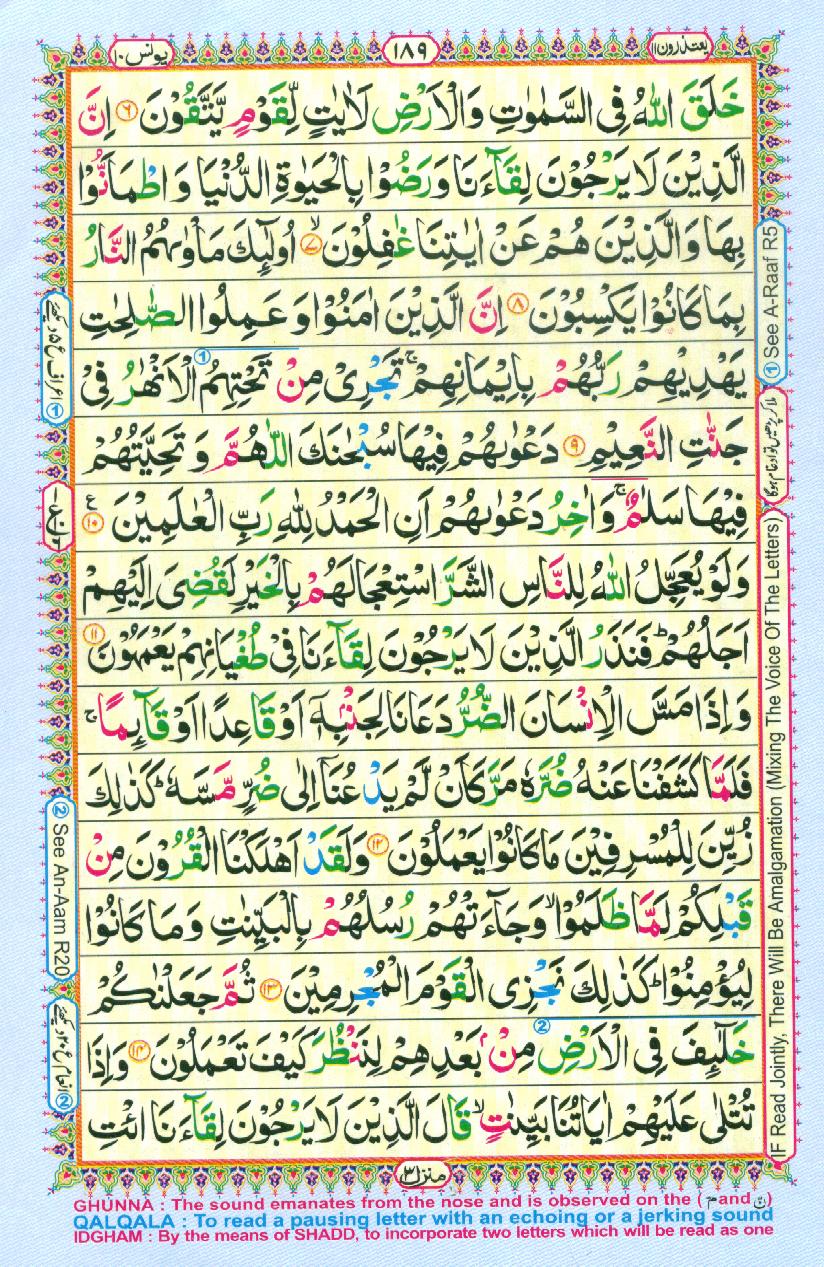 یعتذرون ۱۱
۱۸۹
یونس ۱۰
خَلَقَ اللّٰهُ فِی السَّمٰوٰتِ وَالْاَرْضِ لَاٰیٰتٍ لِّقَوْمٍ یَّتَّقُوْنَ ۶ اِنَّ
الَّذِیْنَ لَا یَرْجُوْنَ لِقَآءَنَا وَرَضُوْا بِالْحَیٰوةِ الدُّنْیَا وَ اطْمَاَنُّوْا
بِهَا وَالَّذِیْنَ هُمْ عَنْ اٰیٰتِنَا غٰفِلُوْنَ ۷ۙ اُولٰٓئِكَ مَاْوٰىهُمُ النَّارُ
بِمَا كَانُوْا یَكْسِبُوْنَ ۸ اِنَّ الَّذِیْنَ اٰمَنُوْا وَ عَمِلُوا الصّٰلِحٰتِ
یَهْدِیْهِمْ رَبُّهُمْ بِاِیْمَانِهِمْ ۚ تَجْرِیْ مِنْ تَحْتِهِمُ ① الْاَنْهٰرُ فِیْ
جَنّٰتِ النَّعِیْمِ ۹ دَعْوٰىهُمْ فِیْهَا سُبْحٰنَكَ اللّٰهُمَّ وَ تَحِیَّتُهُمْ
فِیْهَا سَلٰمٌ ۚ وَاٰخِرُ دَعْوٰىهُمْ اَنِ الْحَمْدُ لِلّٰهِ رَبِّ الْعٰلَمِیْنَ ۱۰ ع
وَلَوْ یُعَجِّلُ اللّٰهُ لِلنَّاسِ الشَّرَّ اسْتِعْجَالَهُمْ بِالْخَیْرِ لَقُضِیَ اِلَیْهِمْ
اَجَلُهُمْ ؕ فَنَذَرُ الَّذِیْنَ لَا یَرْجُوْنَ لِقَآءَنَا فِیْ طُغْیَانِهِمْ یَعْمَهُوْنَ ۱۱
وَاِذَا مَسَّ الْاِنْسَانَ الضُّرُّ دَعَانَا لِجَنْۢبِهٖۤ اَوْ قَاعِدًا اَوْ قَآئِمًا ۚ
فَلَمَّا كَشَفْنَا عَنْهُ ضُرَّهٗ مَرَّ كَاَنْ لَّمْ یَدْعُنَاۤ اِلٰی ضُرٍّ مَّسَّهٗ ؕ كَذٰلِكَ
زُیِّنَ لِلْمُسْرِفِیْنَ مَا كَانُوْا یَعْمَلُوْنَ ۱۲ وَلَقَدْ اَهْلَكْنَا الْقُرُوْنَ مِنْ
قَبْلِكُمْ لَمَّا ظَلَمُوْا ۙ وَجَآءَتْهُمْ رُسُلُهُمْ بِالْبَیِّنٰتِ وَمَا كَانُوْا
لِیُؤْمِنُوْا ؕ كَذٰلِكَ نَجْزِی الْقَوْمَ الْمُجْرِمِیْنَ ۱۳ ثُمَّ جَعَلْنٰكُمْ
خَلٰٓئِفَ فِی الْاَرْضِ ② مِنْۢ بَعْدِهِمْ لِنَنْظُرَ كَیْفَ تَعْمَلُوْنَ ۱۴ وَاِذَا
تُتْلٰی عَلَیْهِمْ اٰیَاتُنَا بَیِّنٰتٍ ۙ قَالَ الَّذِیْنَ لَا یَرْجُوْنَ لِقَآءَنَا ائْتِ
① See A-Raaf R5
(IF Read Jointly, There Will Be Amalgamation (Mixing The Voice Of The Letters)
① اعراف ع ۵ دیکھئے
② See An-Aam R20
② انعام ع ۲۰ دیکھئے
منزل ۳
GHUNNA : The sound emanates from the nose and is observed on the (مّ and نّ)
QALQALA : To read a pausing letter with an echoing or a jerking sound
IDGHAM : By the means of SHADD, to incorporate two letters which will be read as one